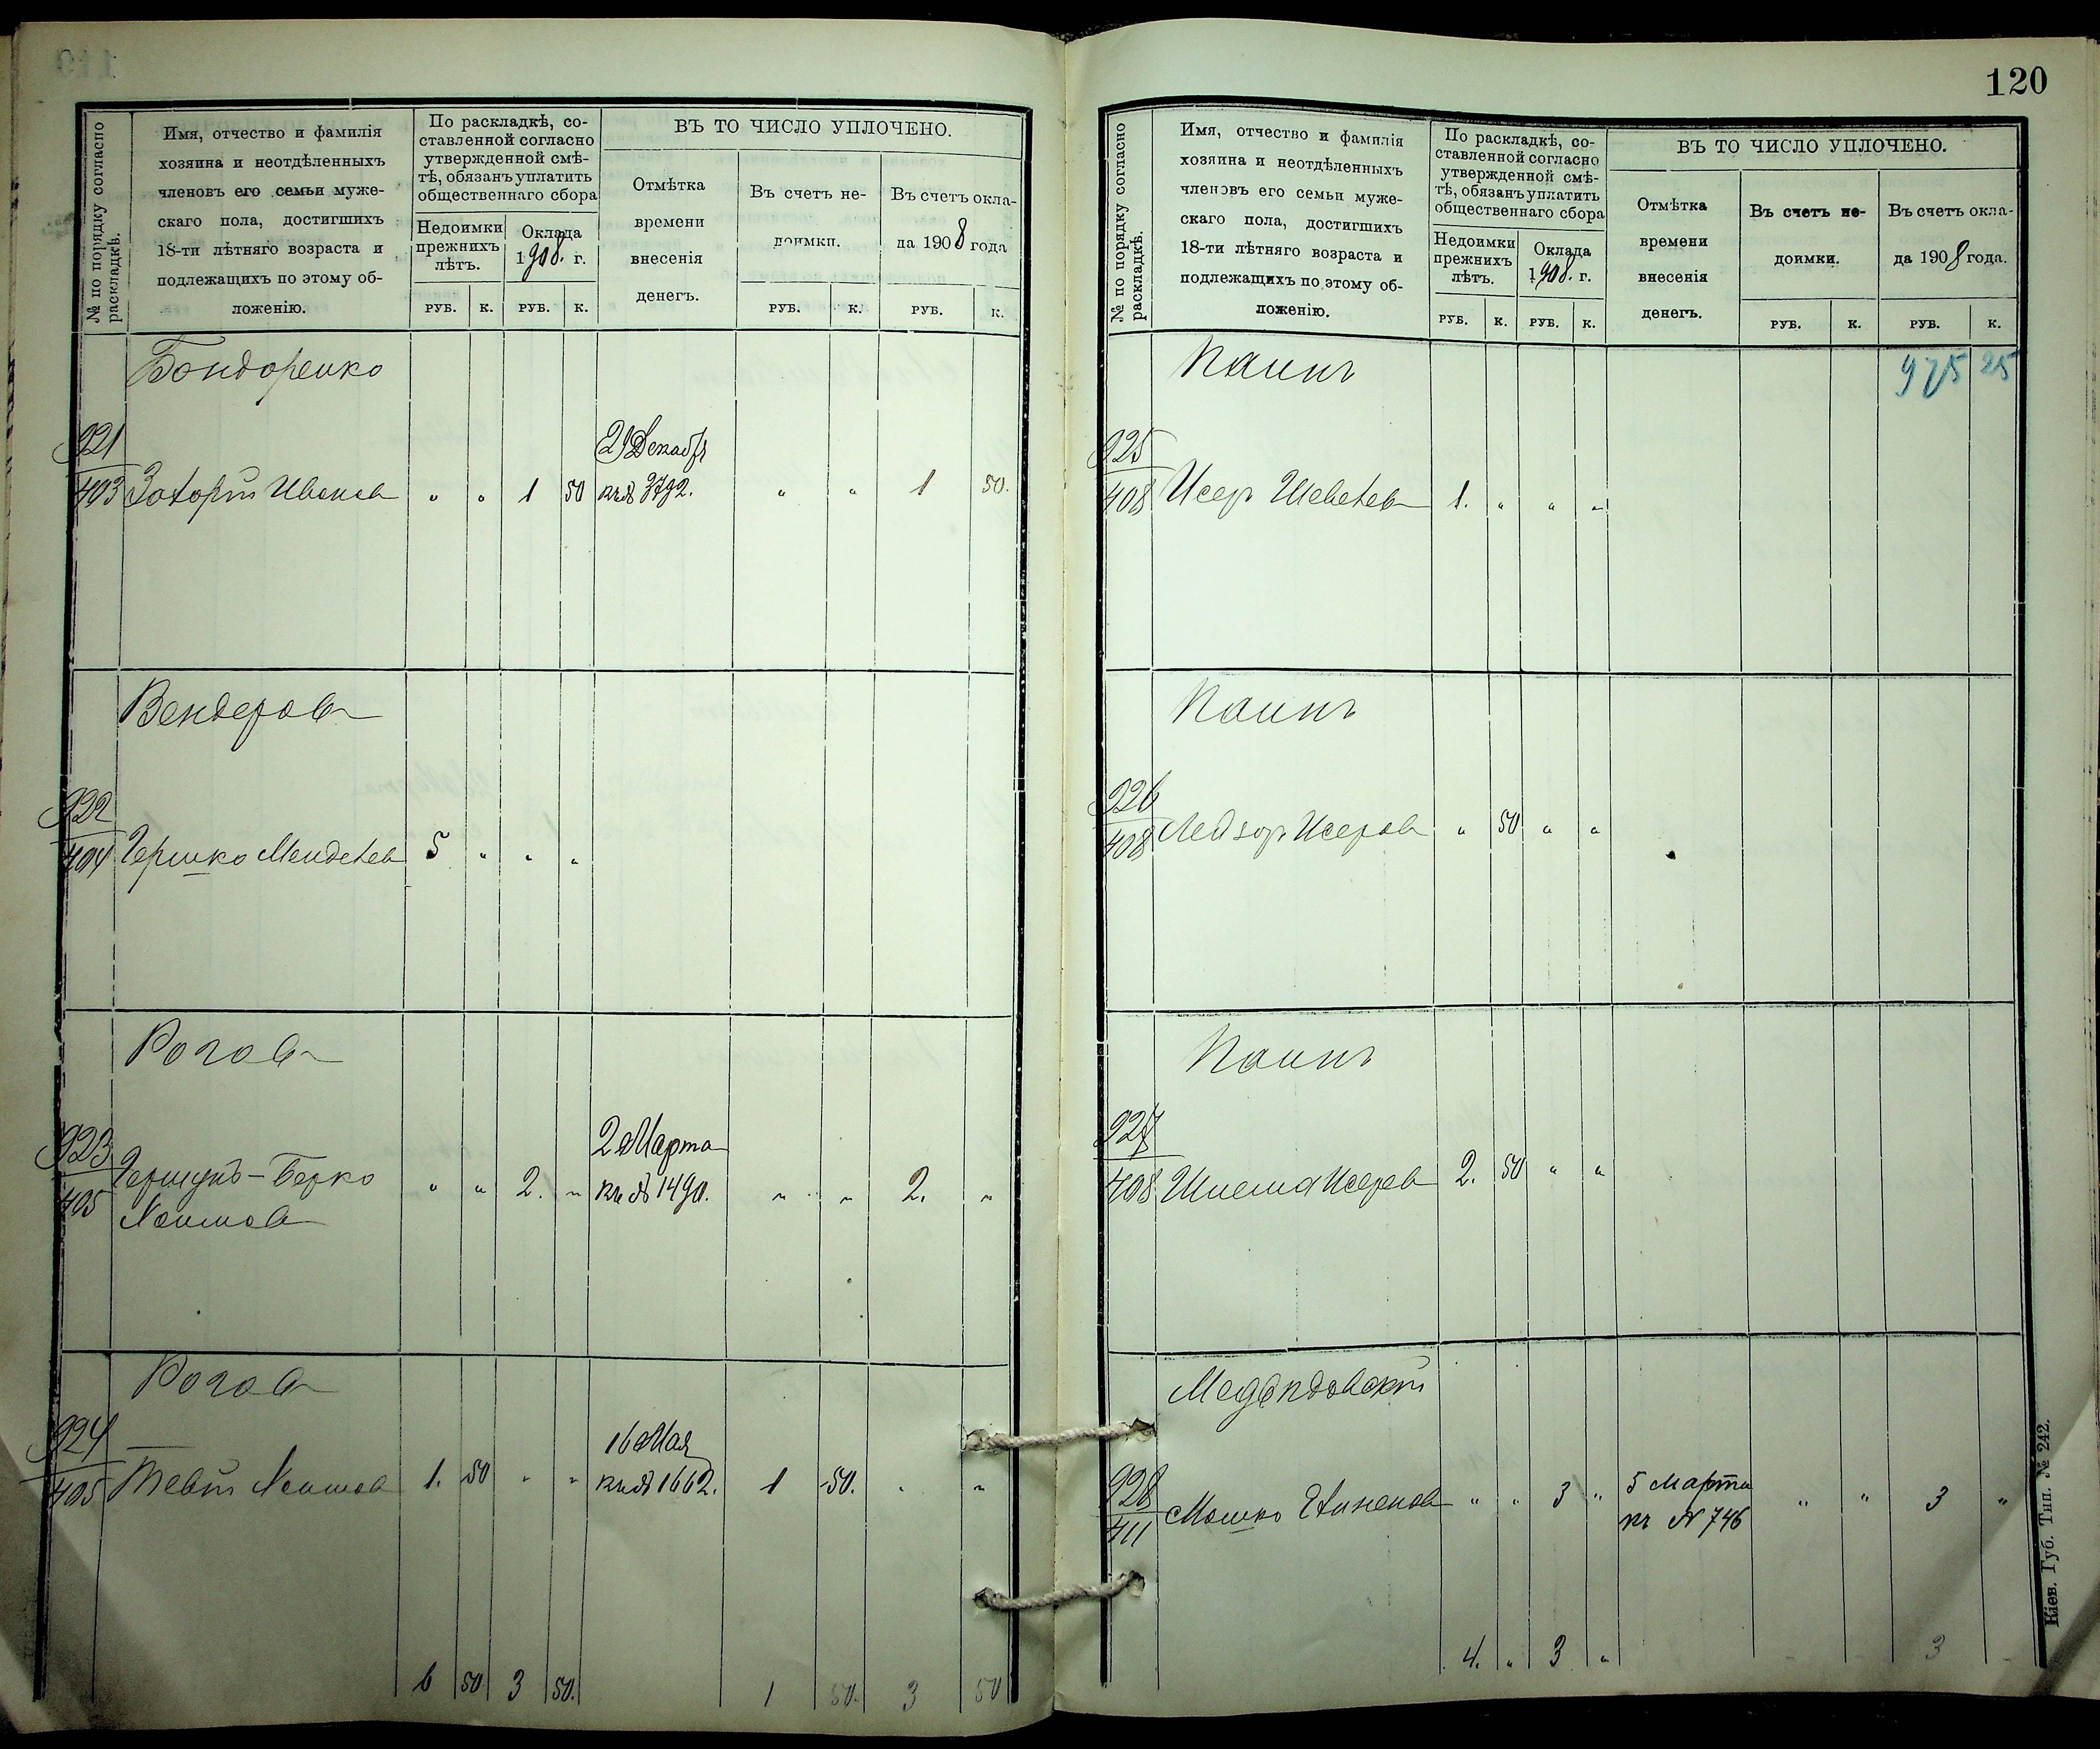 120
№ по порядку согласно раскладкѣ.
Имя, отчество и фамилія
хозяина и неотдѣленныхъ
членовъ его семьи муже-
скаго пола, достигшихъ
18-ти лѣтняго возраста и
подлежащихъ по этому об-
ложенію.
По раскладкѣ, со-
ставленной согласно
утвержденной смѣ-
тѣ, обязанъ уплатить
общественнаго сбора
Недоимки
прежнихъ
лѣтъ.
Оклада
1908. г.
РУБ. К. РУБ. К.
ВЪ ТО ЧИСЛО УПЛОЧЕНО.
Отмѣтка
времени
внесенія
денегъ.
Въ счетъ не-
доимки.
Въ счетъ окла-
да 1908 года
РУБ. К. РУБ. К.
Бондоренко
921
403 Захорій Ивановъ " " 1 50
29 Декабр
кн № 3792. " " 1 50.
Вендеровъ
922
404 Гершко Менделев 5 " " "
Роговъ
923
405 Гершунъ-Берко " " 2. "
Хаимовъ
2 Марта
кн № 1490. " " 2. "
Роговъ
924
405 Тевій Хаимов 1. 50 " "
16 Мая
кн № 1662. 1 50. " "
6 50 3 50. 1 50. 3 50
№ по порядку согласно раскладкѣ.
Имя, отчество и фамилія
хозяина и неотдѣленныхъ
членовъ его семьи муже-
скаго пола, достигшихъ
18-ти лѣтняго возраста и
подлежащихъ по этому об-
ложенію.
По раскладкѣ, со-
ставленной согласно
утвержденной смѣ-
тѣ, обязанъ уплатить
общественнаго сбора
Недоимки
прежнихъ
лѣтъ.
Оклада
1908. г.
РУБ. К. РУБ. К.
ВЪ ТО ЧИСЛО УПЛОЧЕНО.
Отмѣтка
времени
внесенія
денегъ.
Въ счетъ не-
доимки.
Въ счетъ окла-
да 1908 года.
РУБ. К. РУБ. К.
975 25
925
408 Исеръ 1. " " "
926
408 Лейзоръ Исеровъ " 50 " "
927
408 Исеров 2. 50 " "
928
411 Мошко " " 3 "
5 Марта
кн № 746 " " 3 "
4. " 3 " 3
Кіев. Губ. Тип. № 242.